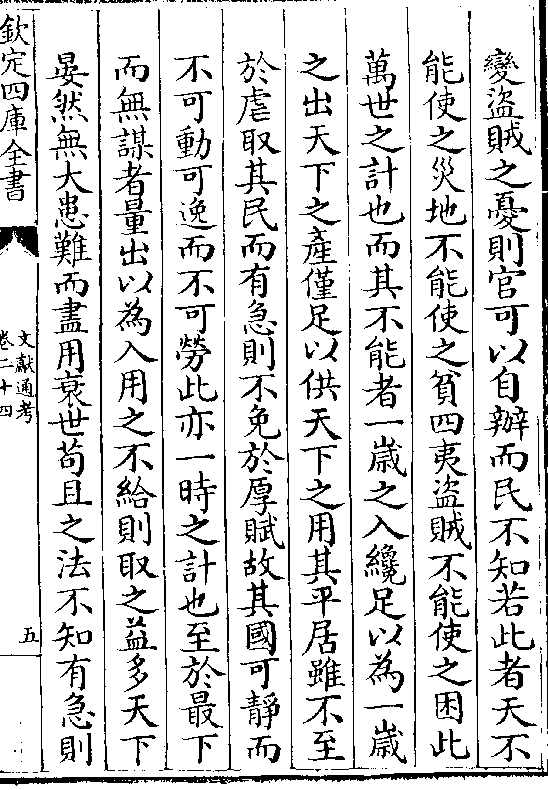 變盜賊之憂則官可以自辦而民不知若此者天不
能使之災地不能使之貧四夷盜賊不能使之困此
萬世之計也而其不能者一歲之入纔足以為一歲
之出天下之產僅足以供天下之用其平居雖不至
於虐取其民而有急則不免於厚賦故其國可靜而
不可動可逸而不可勞此亦一時之計也至於最下
而無謀者量出以為入用之不給則取之益多天下
晏然無大患難而盡用衰世苟且之法不知有急則
欽定四庫全書
文獻通考
卷二十四
五